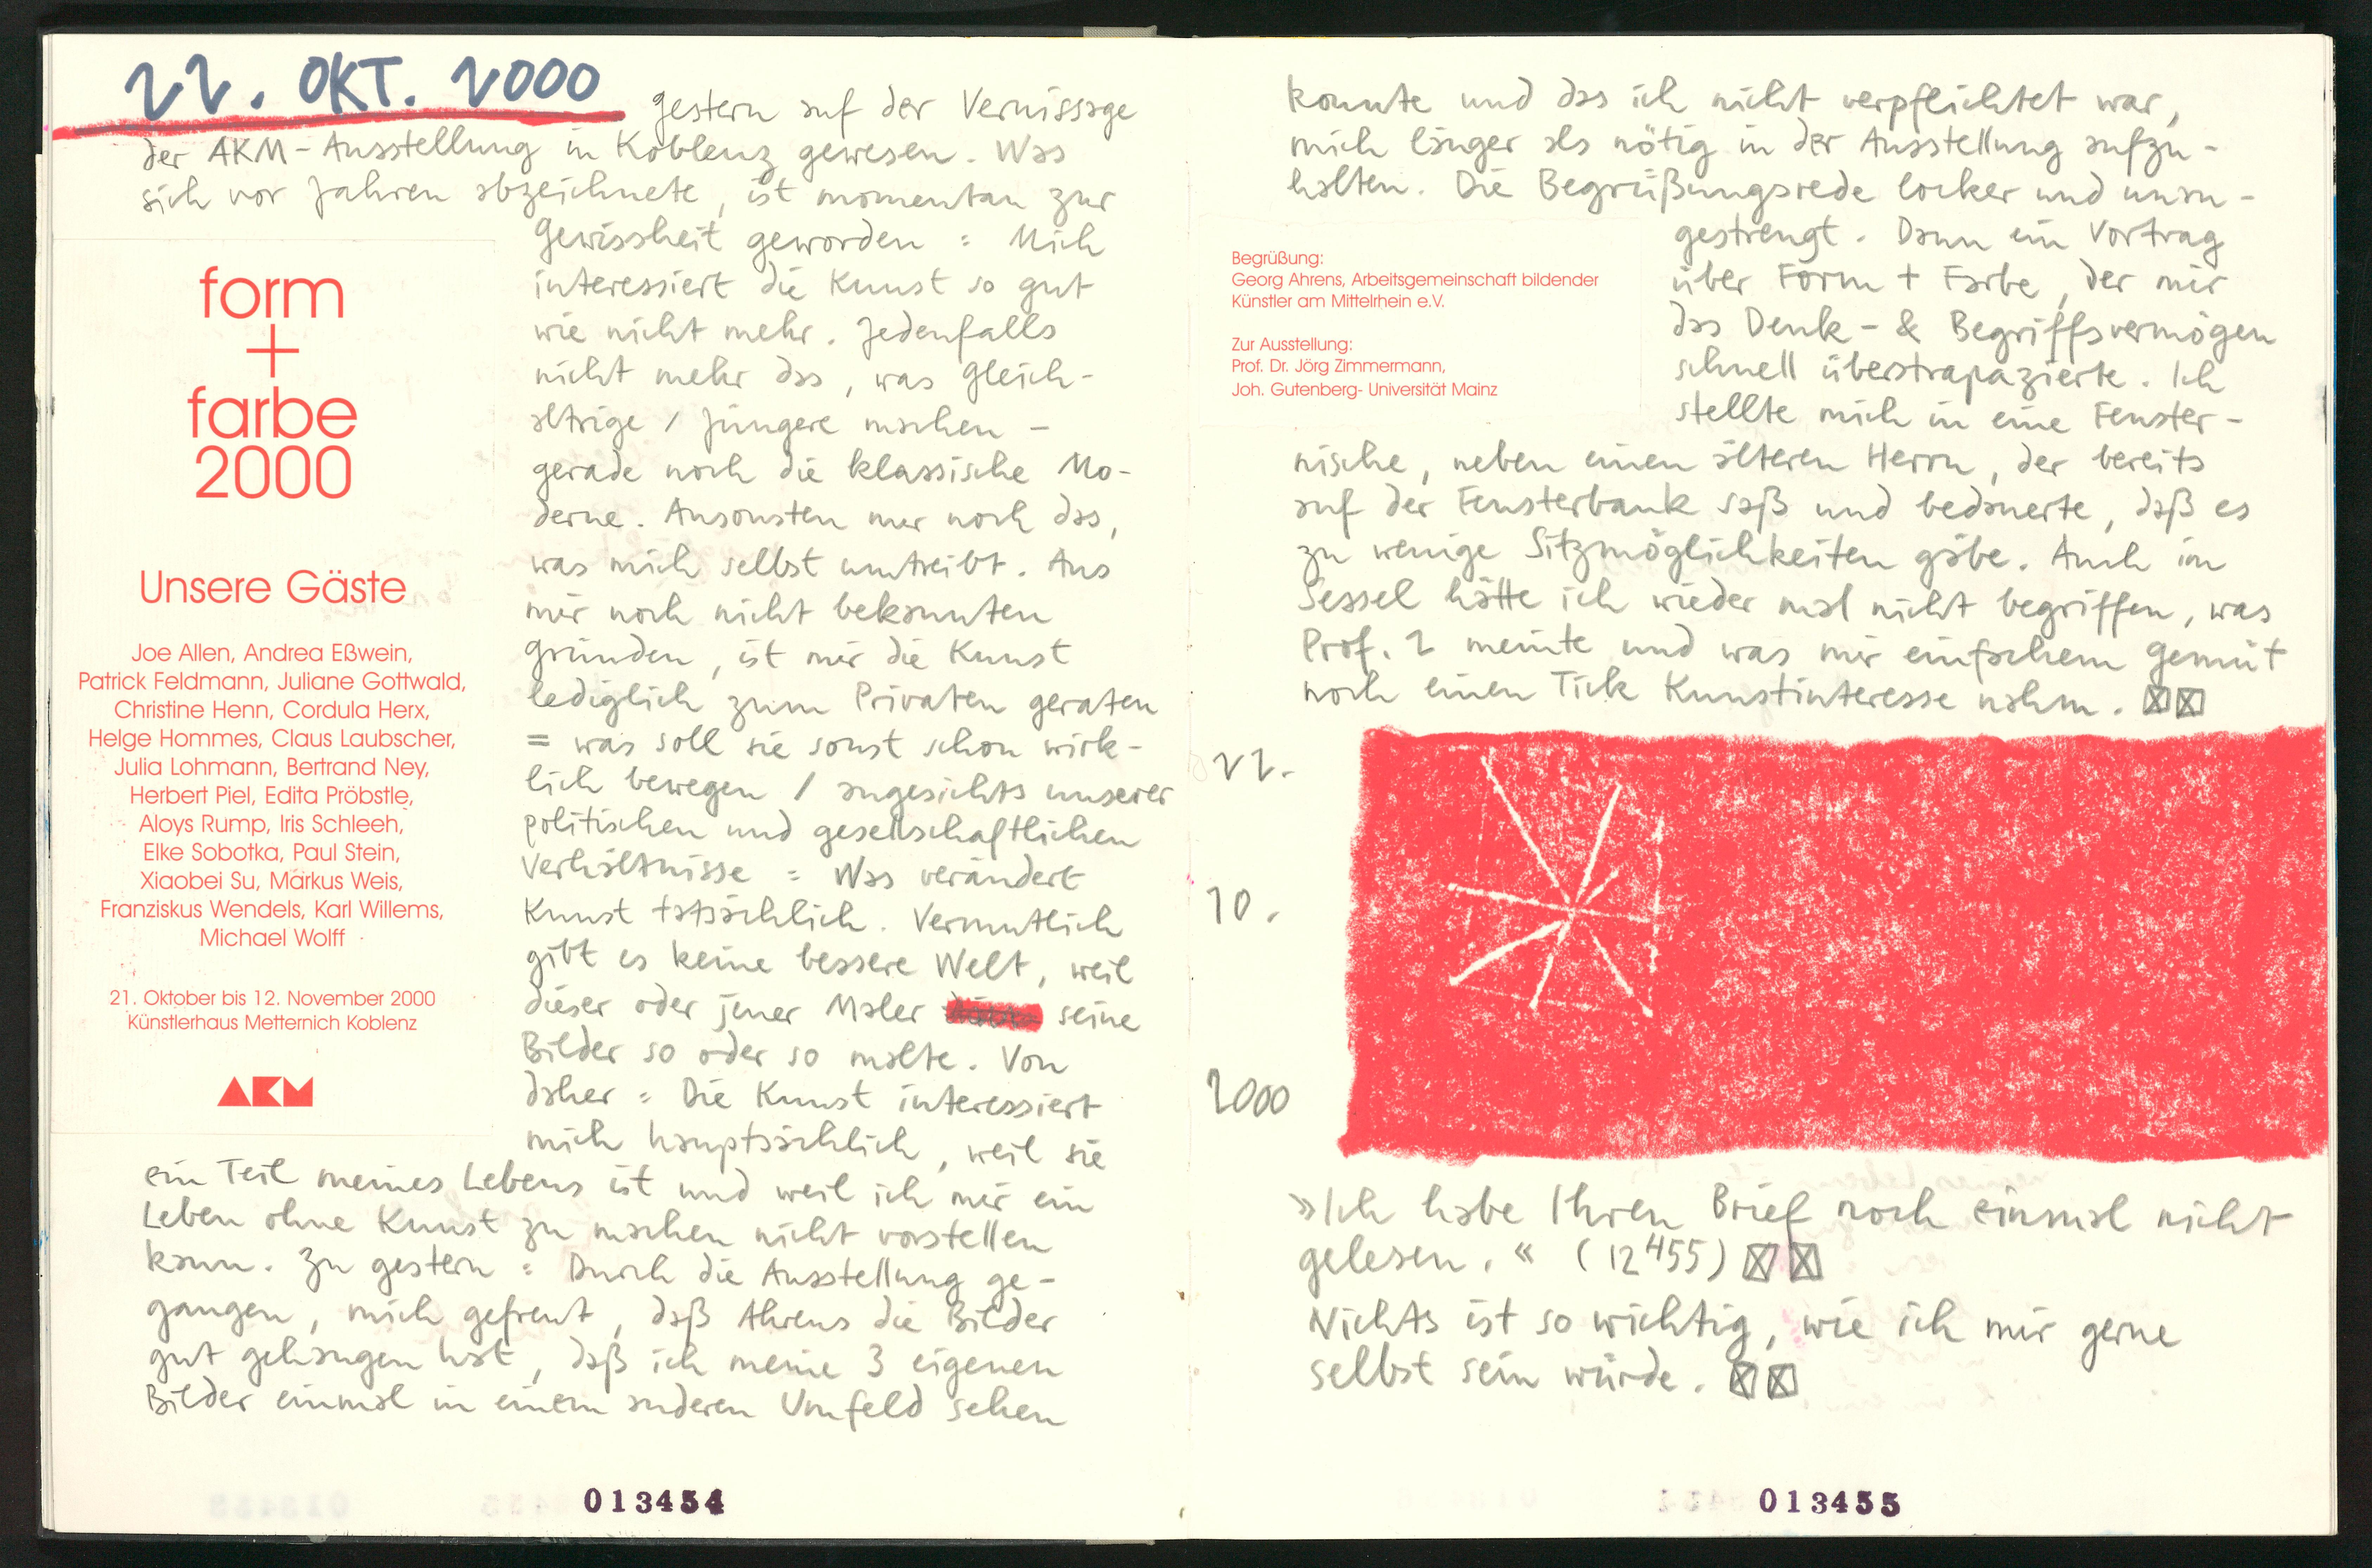 22. OKT. 2000
gestern auf der Vernissage
der AKM-Ausstellung in Koblenz gewesen. Was
sich vor Jahren abzeichnete, ist momentan zur
Gewissheit geworden : Mich
interessiert die Kunst so gut
wie nicht mehr. Jedenfalls
nicht mehr das, was gleich-
altrige / Jüngere machen -
gerade noch die klassische Mo-
derne. Ansonsten nur noch das,
was mich selbst umtreibt. Aus
mir noch nicht bekannten
Gründen, ist mir die Kunst
lediglich zum Privaten geraten
= was soll sie sonst schon wirk-
lich bewegen / angesichts unserer
politischen und gesellschaftlichen
Verhältnisse : Was verändert
Kunst tatsächlich. Vermutlich
gibt es keine bessere Welt, weil
dieser oder jener Maler seine
Bilder so oder so malte. Von
daher : Die Kunst interessiert
mich hauptsächlich, weil sie
ein Teil meines Lebens ist und weil ich mir ein
Leben ohne Kunst zu machen nicht vorstellen
kann. Zu gestern : Durch die Ausstellung ge-
gangen, mich gefreut, daß Ahrens die Bilder
gut gehangen hat, daß ich meine 3 eigenen
Bilder einmal in einem anderen Umfeld sehen
form
+
farbe
2000
Unsere Gäste
Joe Allen, Andrea Eßwein,
Patrick Feldmann, Juliane Gottwald,
Christine Henn, Cordula Herx,
Helge Hommes, Claus Laubscher,
Julia Lohmann, Bertrand Ney,
Herbert Piel, Edita Pröbstle,
Aloys Rump, Iris Schleeh,
Elke Sobotka, Paul Stein,
Xiaobei Su, Markus Weis,
Franziskus Wendels, Karl Willems,
Michael Wolff
21. Oktober bis 12. November 2000
Künstlerhaus Metternich Koblenz
AKM
013454
konnte und das ich nicht verpflichtet war,
mich länger als nötig in der Ausstellung aufzu-
halten. Die Begrüßungsrede locker und unan-
gestrengt. Dann ein Vortrag
über Form + Farbe, der mir
das Denk- & Begriffsvermögen
schnell überstrapazierte. Ich
stellte mich in eine Fenster-
nische, neben einen älteren Herrn, der bereits
auf der Fensterbank saß und bedauerte, daß es
zu wenige Sitzmöglichkeiten gäbe. Auch im
Sessel hätte ich wieder mal nicht begriffen, was
Prof. Z meinte und was mir einfachem Gemüt
noch einen Tick Kunstinteresse nahm. ☒☒
Begrüßung:
Georg Ahrens, Arbeitsgemeinschaft bildender
Künstler am Mittelrhein e.V.
Zur Ausstellung:
Prof. Dr. Jörg Zimmermann,
Joh. Gutenberg- Universität Mainz
22.
10.
2000
»Ich habe Ihren Brief noch einmal nicht
gelesen.« (12455) ☒☒
Nichts ist so wichtig, wie ich mir gerne
selbst sein würde. ☒☒
013455